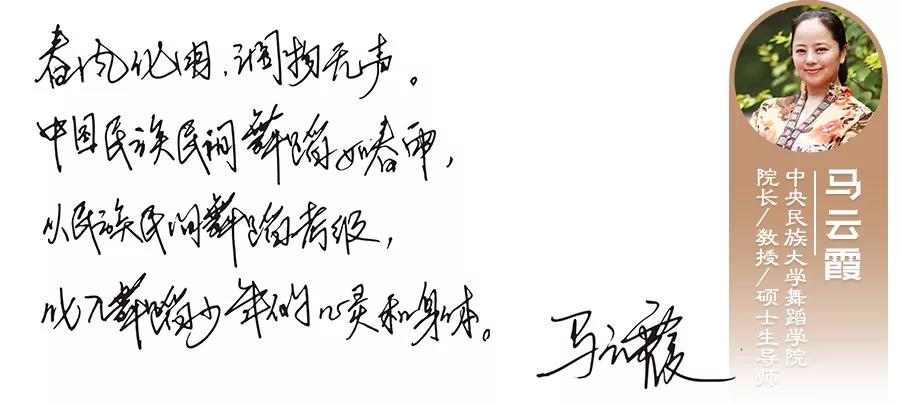 春风化雨,润物无声。
中国民族民间舞蹈如春雨,
以民族民间舞蹈考级,
舞蹈少年的心灵和身体。
马云霞
马云霞
中央民族大学舞蹈学院
院长/教授/硕士生导师